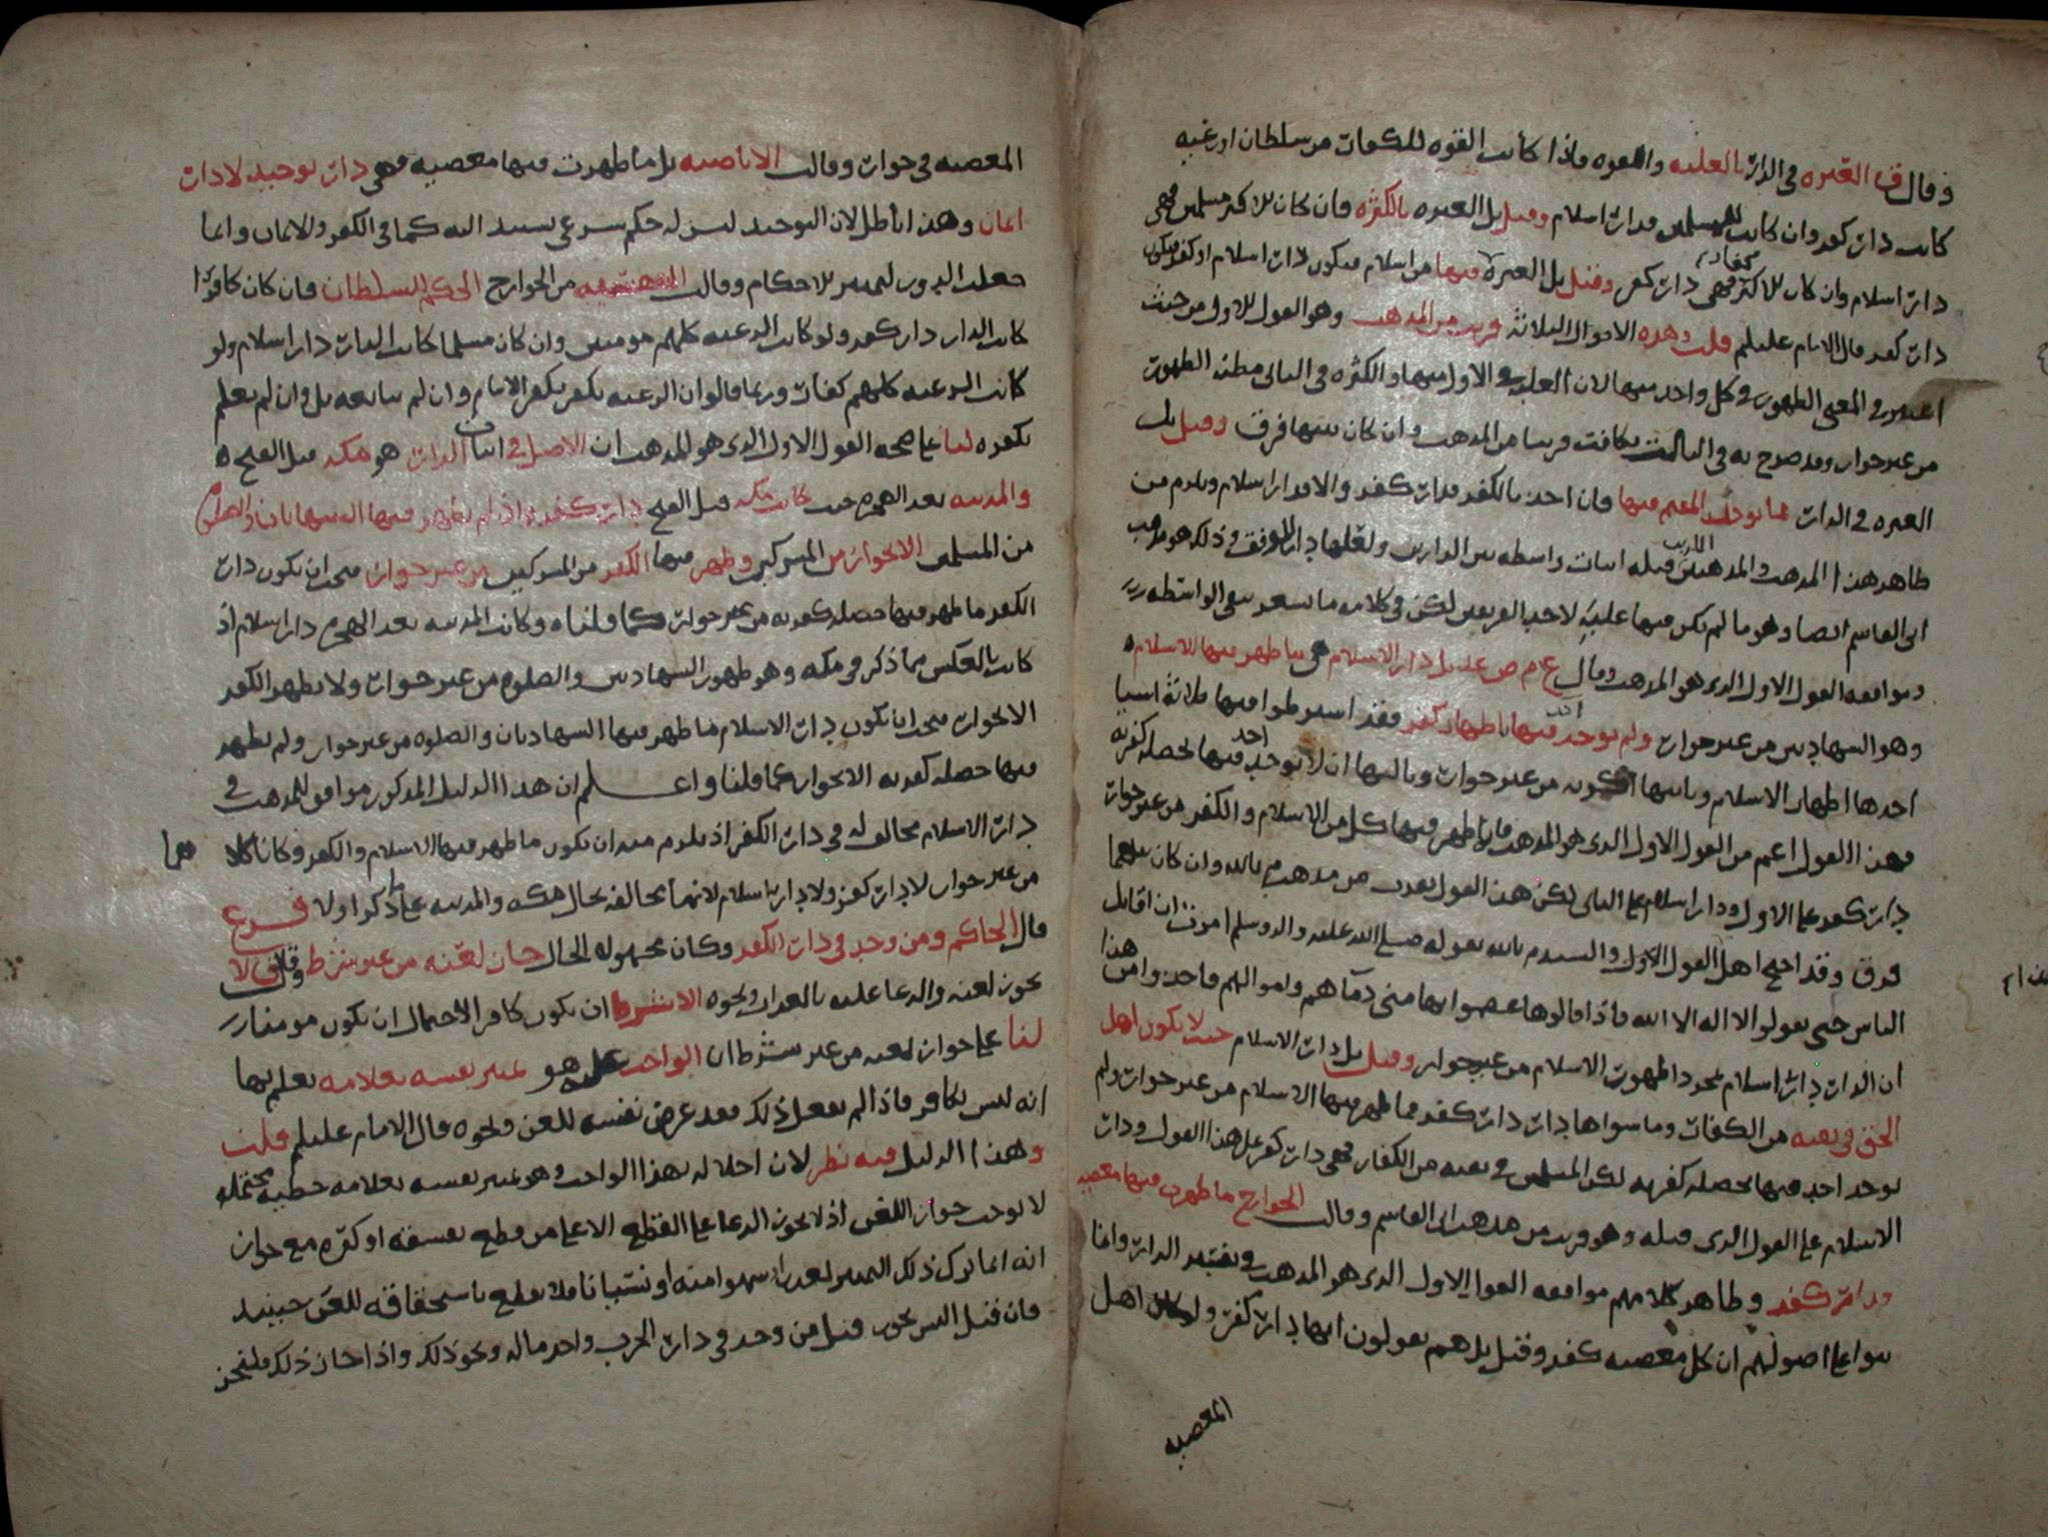 وقال ق العبره في الدار بالغلبه والقوه فاذا كانت القوه للكفار من سلطان او رعيه
كانت دار كفر وان كانت للمسلمين فدار اسلام وقيل بل العبره بالكثره فان كان الاكثر مسلمين فهي
دار اسلام وان كان الاكثر كفارا فهي دار كفر وقيل بل العبره فيها من اسلام فيكون دار اسلام او كفر فيكون
دار كفر قال الامام عليلم قلت وهذه الاقوال الثلاثه قريب من المذهب وهو القول الاول من حيث
اعتبر في المعنى الظهور في كل واحد منها لان الغلبه في الاول منها والكثره في الثاني مظنه الظهور
من غير جوار وقد صرح به في الثالث فكانت قريبا من المذهب وان كان بينها فرق وقيل بل
العبره في الدار بما يوخذ المقيم فيها فان اخذ بالكفر فدار كفر والا فدار اسلام ويلزم من
ظاهر هذا المذهب والمذهبين اللذين قبله اثبات واسطه بين الدارين ولعلها دار الوقف وذلك هو مذهب
ابي القاسم ايضا وهو ما لم يكن فيها غلبه لاحد الفريقين لكن في كلامه ما يشعر بنفي الواسطه
وموافقه القول الاول الذي هو المذهب وقال ع م ص عليلم بل دار الاسلام هي ما ظهر فيها الاسلام ه
وهو الشهادتين من غير جوار ولم يوخذ احد فيها باظهار كفر فقد اشترطوا فيها ثلاثة اشيا
احدها اظهار الاسلام وثانيها كونه من غير جوار وثالثها ان لا يوخذ احد فيها بخصله كفريه
فهذا القول اعم من القول الاول الذي هو المذهب فاذا ظهر فيها كل من الاسلام والكفر من غير جوار
دار كفر على الاول ودار اسلام على الثاني لكن هذا القول يقرب من مذهب م بالله وان كان بينهما
فرق وقد احتج اهل القول الاول والسيد م بالله بقوله صلى الله عليه واله وسلم امرت ان اقاتل
الناس حتى يقولوا لا اله الا الله فاذا قالوها عصموا بها مني دمآهم واموالهم فاخذوا من هذا
ان الدار دار اسلام بمجرد ظهور الاسلام من غير جوار وقيل بل دار الاسلام حيث لا يكون اهل
الحق في تقيه من الكفار وما سواها دار كفر فما ظهر فيها الاسلام من غير جوار ولم
يوخذ احد فيها بخصله كفريه لكن المسلمين في تقيه من الكفار فهي دار كفر على هذا القول ودار
الاسلام على القول الذي قبله وهو قريب من مذهب ابي القاسم وقالت الخوارج ما ظهرت فيها معصيه
فدار كفر وظاهر كلامهم موافقه القول الاول الذي هو المذهب في تفسير الدار وانما
بنوا على اصولهم ان كل معصيه كفر وقيل بل هم يقولون انها دار كفر ولو كان اهل
المعصيه
المعصيه في جوار وقالت الاباضيه بل ما ظهرت فيها معصيه فهي دار توحيد لا دار
ايمان وهذا باطل لان التوحيد ليس له حكم شرعي يستند اليه كما في الكفر والايمان وانما
جعلت الدور لتميز الاحكام وقالت من الخوارج الحكم للسلطان فان كان كافرا
كانت الدار دار كفر ولو كانت الرعيه كلهم مومنين وان كان مسلما كانت الدار دار اسلام ولو
كانت الرعيه كلهم كفار وربما قالوا ان الرعيه يكفر بكفر الامام وان لم يتابعه بل وان لم يعلم
بكفره لنا على صحه القول الاول الذي هو المذهب ان الاصل في اثبات الدار هو مكه قبل الفتح ه
والمدينه بعد الهجره حيث كانت مكه قبل الفتح دار كفر اذ لم يظهر فيها الشهادتان والصلوه
من المسلمين الا بجوار من المشركين وظهر فيها الكفر من المشركين من غير جوار فيجب ان يكون دار
الكفر ما ظهر فيها خصله كفريه من غير جوار كما قلناه وكانت المدينه بعد الهجره دار اسلام اذ
كانت بالعكس مما ذكر في مكه وهو ظهور الشهادتين والصلوه من غير جوار ولا يظهر الكفر
الا بجوار فيجب ان يكون دار الاسلام ما ظهر فيها الشهادتان والصلوه من غير جوار ولم يظهر
فيها خصله كفريه الا بجوار كما قلنا واعلم ان هذا الدليل المذكور موافق للمذهب في
دار الاسلام مخالف له في دار الكفر اذ يلزم منه ان يكون ما ظهر فيها الاسلام والكفر وكانا كلاهما
من غير جوار لا دار كفر ولا دار اسلام لانها مخالفه لحال مكه والمدينه على ما ذكر اولا فرع
قال الحاكم ومن وجد في دار الكفر وكان مجهول الحال جاز لعنه من غير شرط وقال ق لا
يجوز لعنه والدعا عليه بالعذاب ونحوه الا بشرط ان يكون كافرا لاحتمال ان يكون مومنا
لنا على جواز لعنه من غير شرط ان الواجب عليه هو تمييز نفسه بعلامه يعلم بها
انه ليس بكافر فاذا لم يفعل ذلك فقد عرض نفسه للعن ونحوه قال الامام عليلم قلت
وهذا الدليل فيه نظر لان اخلاله بهذا الواجب وهو تمييز نفسه بعلامه خطيه محتمله
لا يوجب جواز اللعن اذ لا يجوز الدعا على القطع الا على من قطع بفسقه او كفره مع جواز
انه انما ترك ذلك التمييز لعذر او سهوا منه او نسيانا فلا يقطع باستحقاقه للعن حينيذ
فان قيل اليس يجوز قتل من وجد في دار الحرب واخذ ماله ونحو ذلك واذا جاز ذلك فليجز